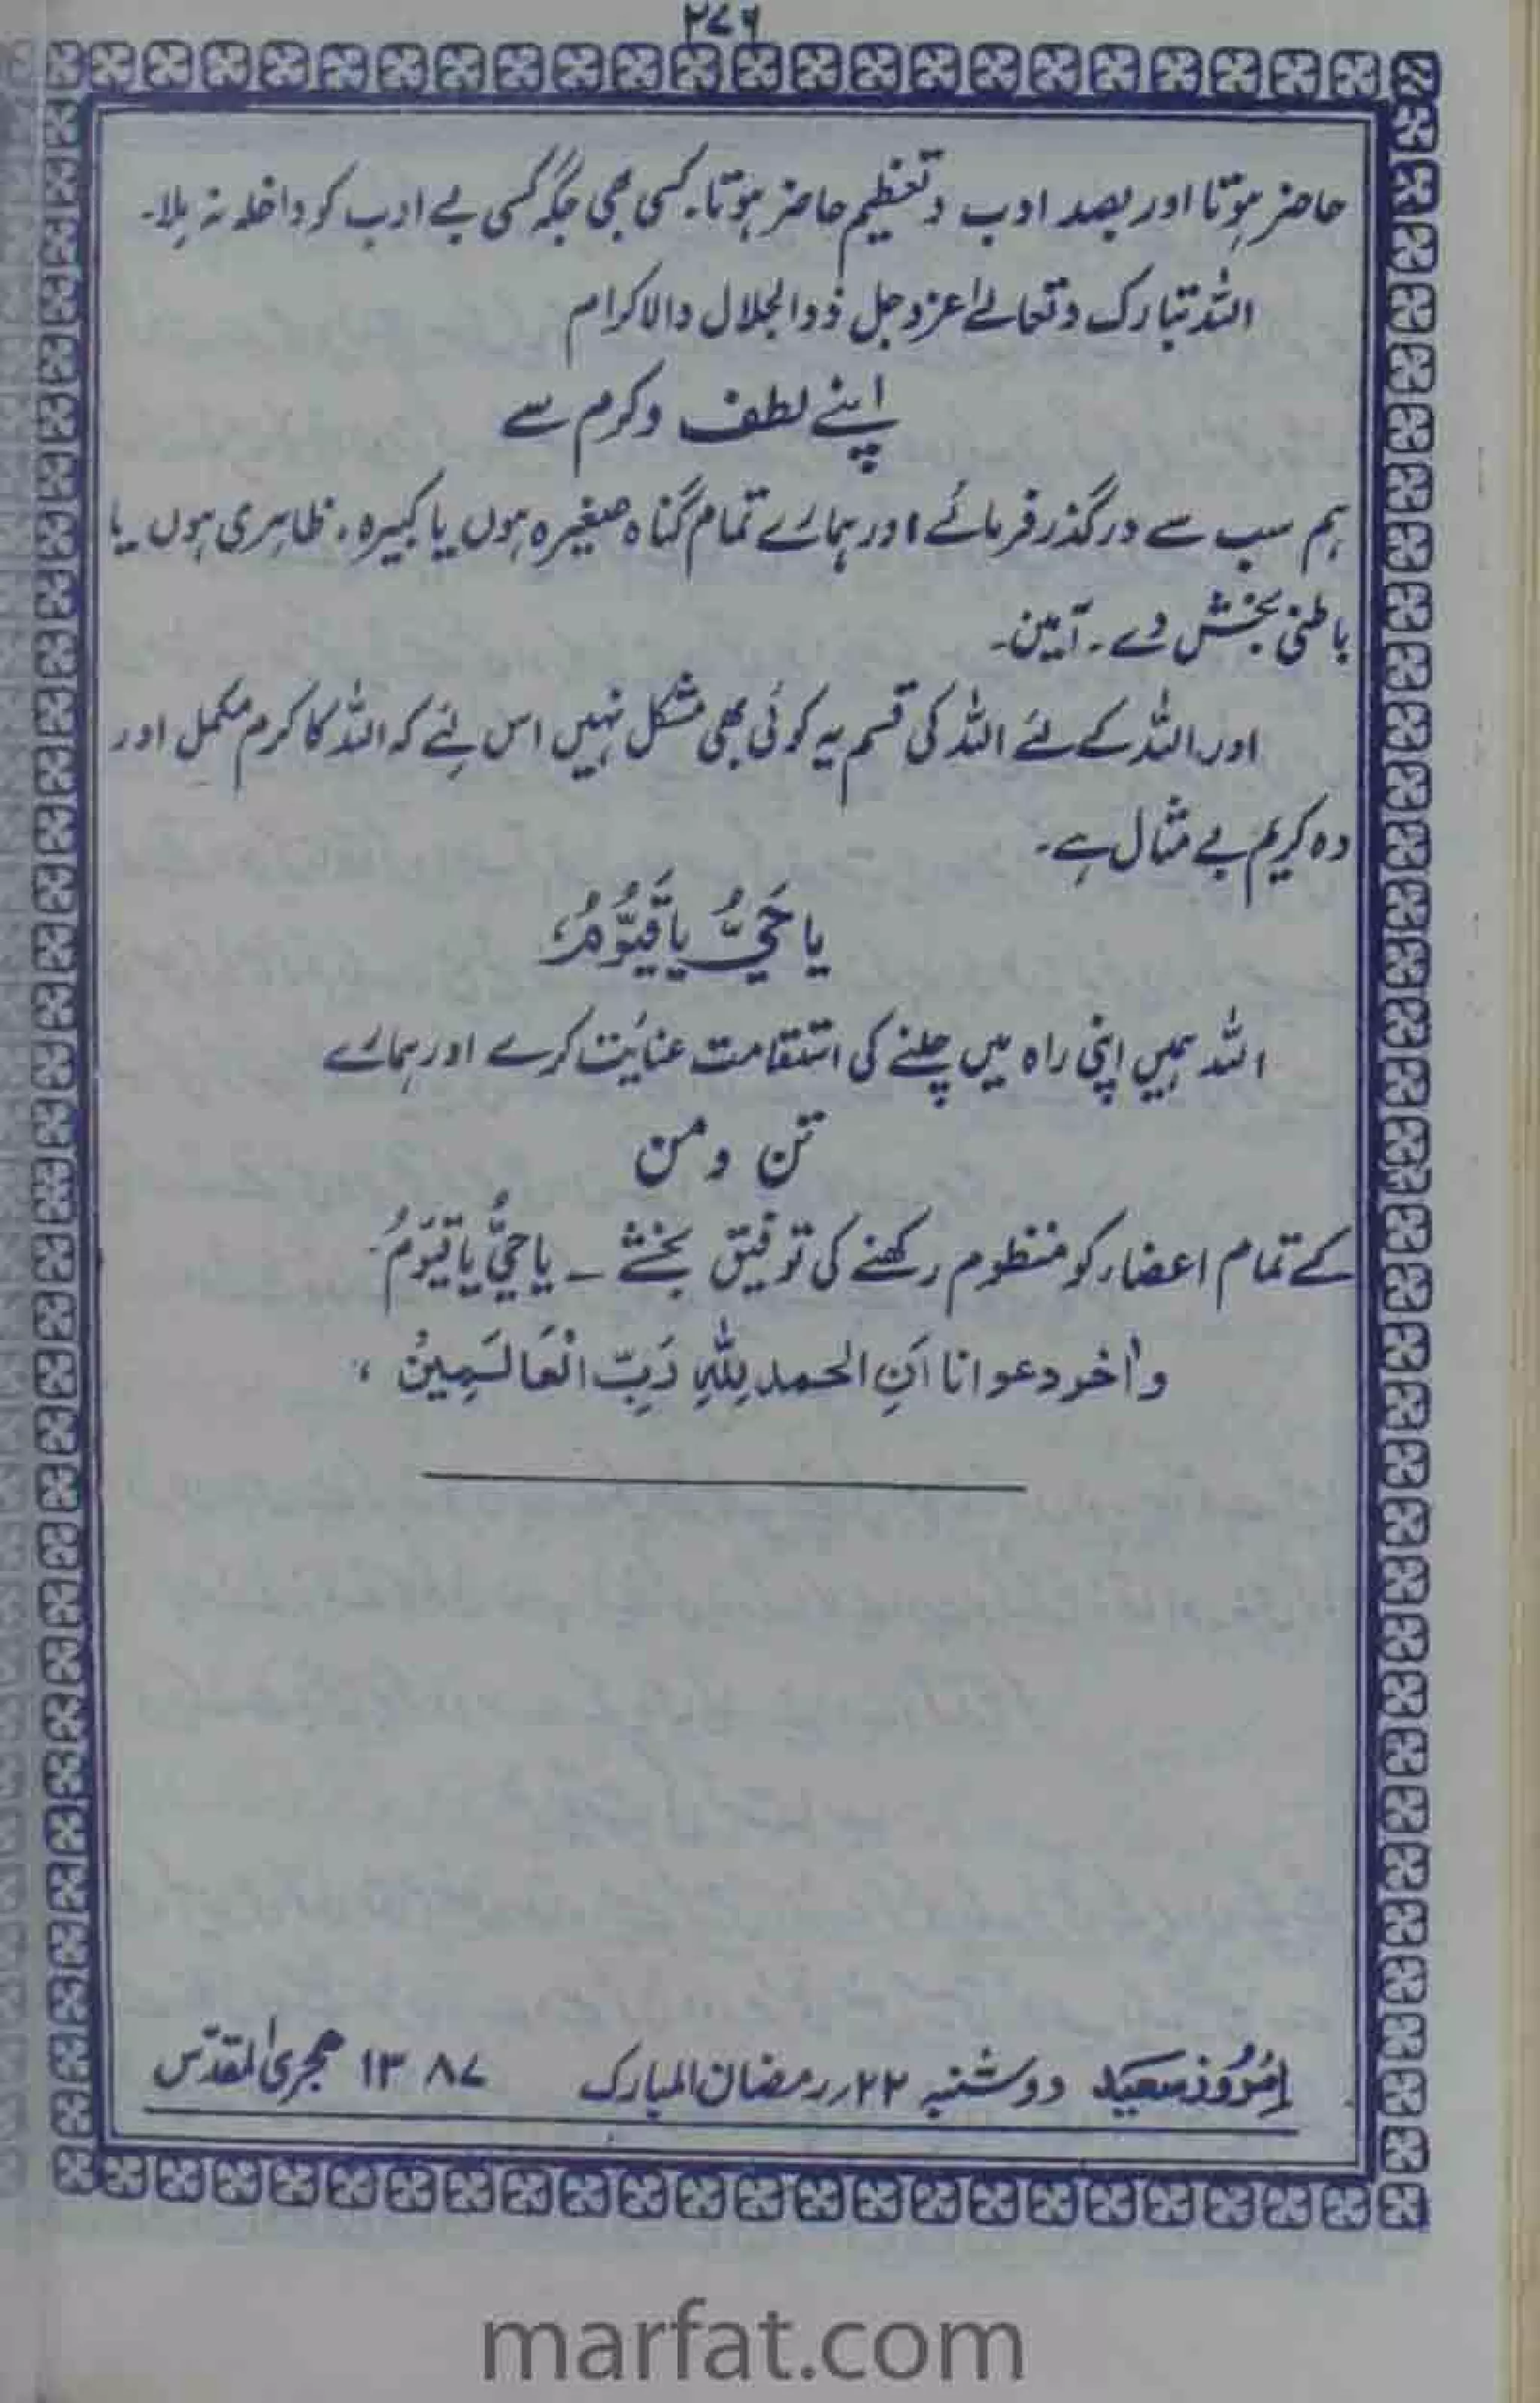 ۲۷۶
حاضر ہوتا اور بصد ادب و تعظیم حاضر ہوتا۔ کسی بھی جگہ کسی بے ادب کو داخلہ نہ ملا۔
اللہ تبارک و تعالےٰ عزوجل ذوالجلال والاکرام
اپنے لطف و کرم سے
ہم سب سے درگذر فرمائے اور ہمارے تمام گناہ صغیرہ ہوں یا کبیرہ، ظاہری ہوں یا
باطنی بخش دے۔ آمین۔
اور اللہ کے لئے اللہ کی قسم یہ کوئی بھی مشکل نہیں اس لئے کہ اللہ کا کرم مکمل اور
وہ کریم بے مثال ہے۔
یَا حَیُّ یَا قَیُّوْمُ
اللہ ہمیں اپنی راہ میں چلنے کی استقامت عنایت کرے اور ہمارے
تن و من
کے تمام اعضاء کو منظوم رکھنے کی توفیق بخشے ۔ یا حیُّ یا قیّومُ
واٰخر دعوانا اَنِ الحمد لِلّٰہِ رَبِّ الْعَالَمِیْنْ ،
اِمْرُوْز سَعِیْد دوشنبہ ۲۲؍ رمضان المبارک ۱۳۸۷ ہجری المقدّس
marfat.com